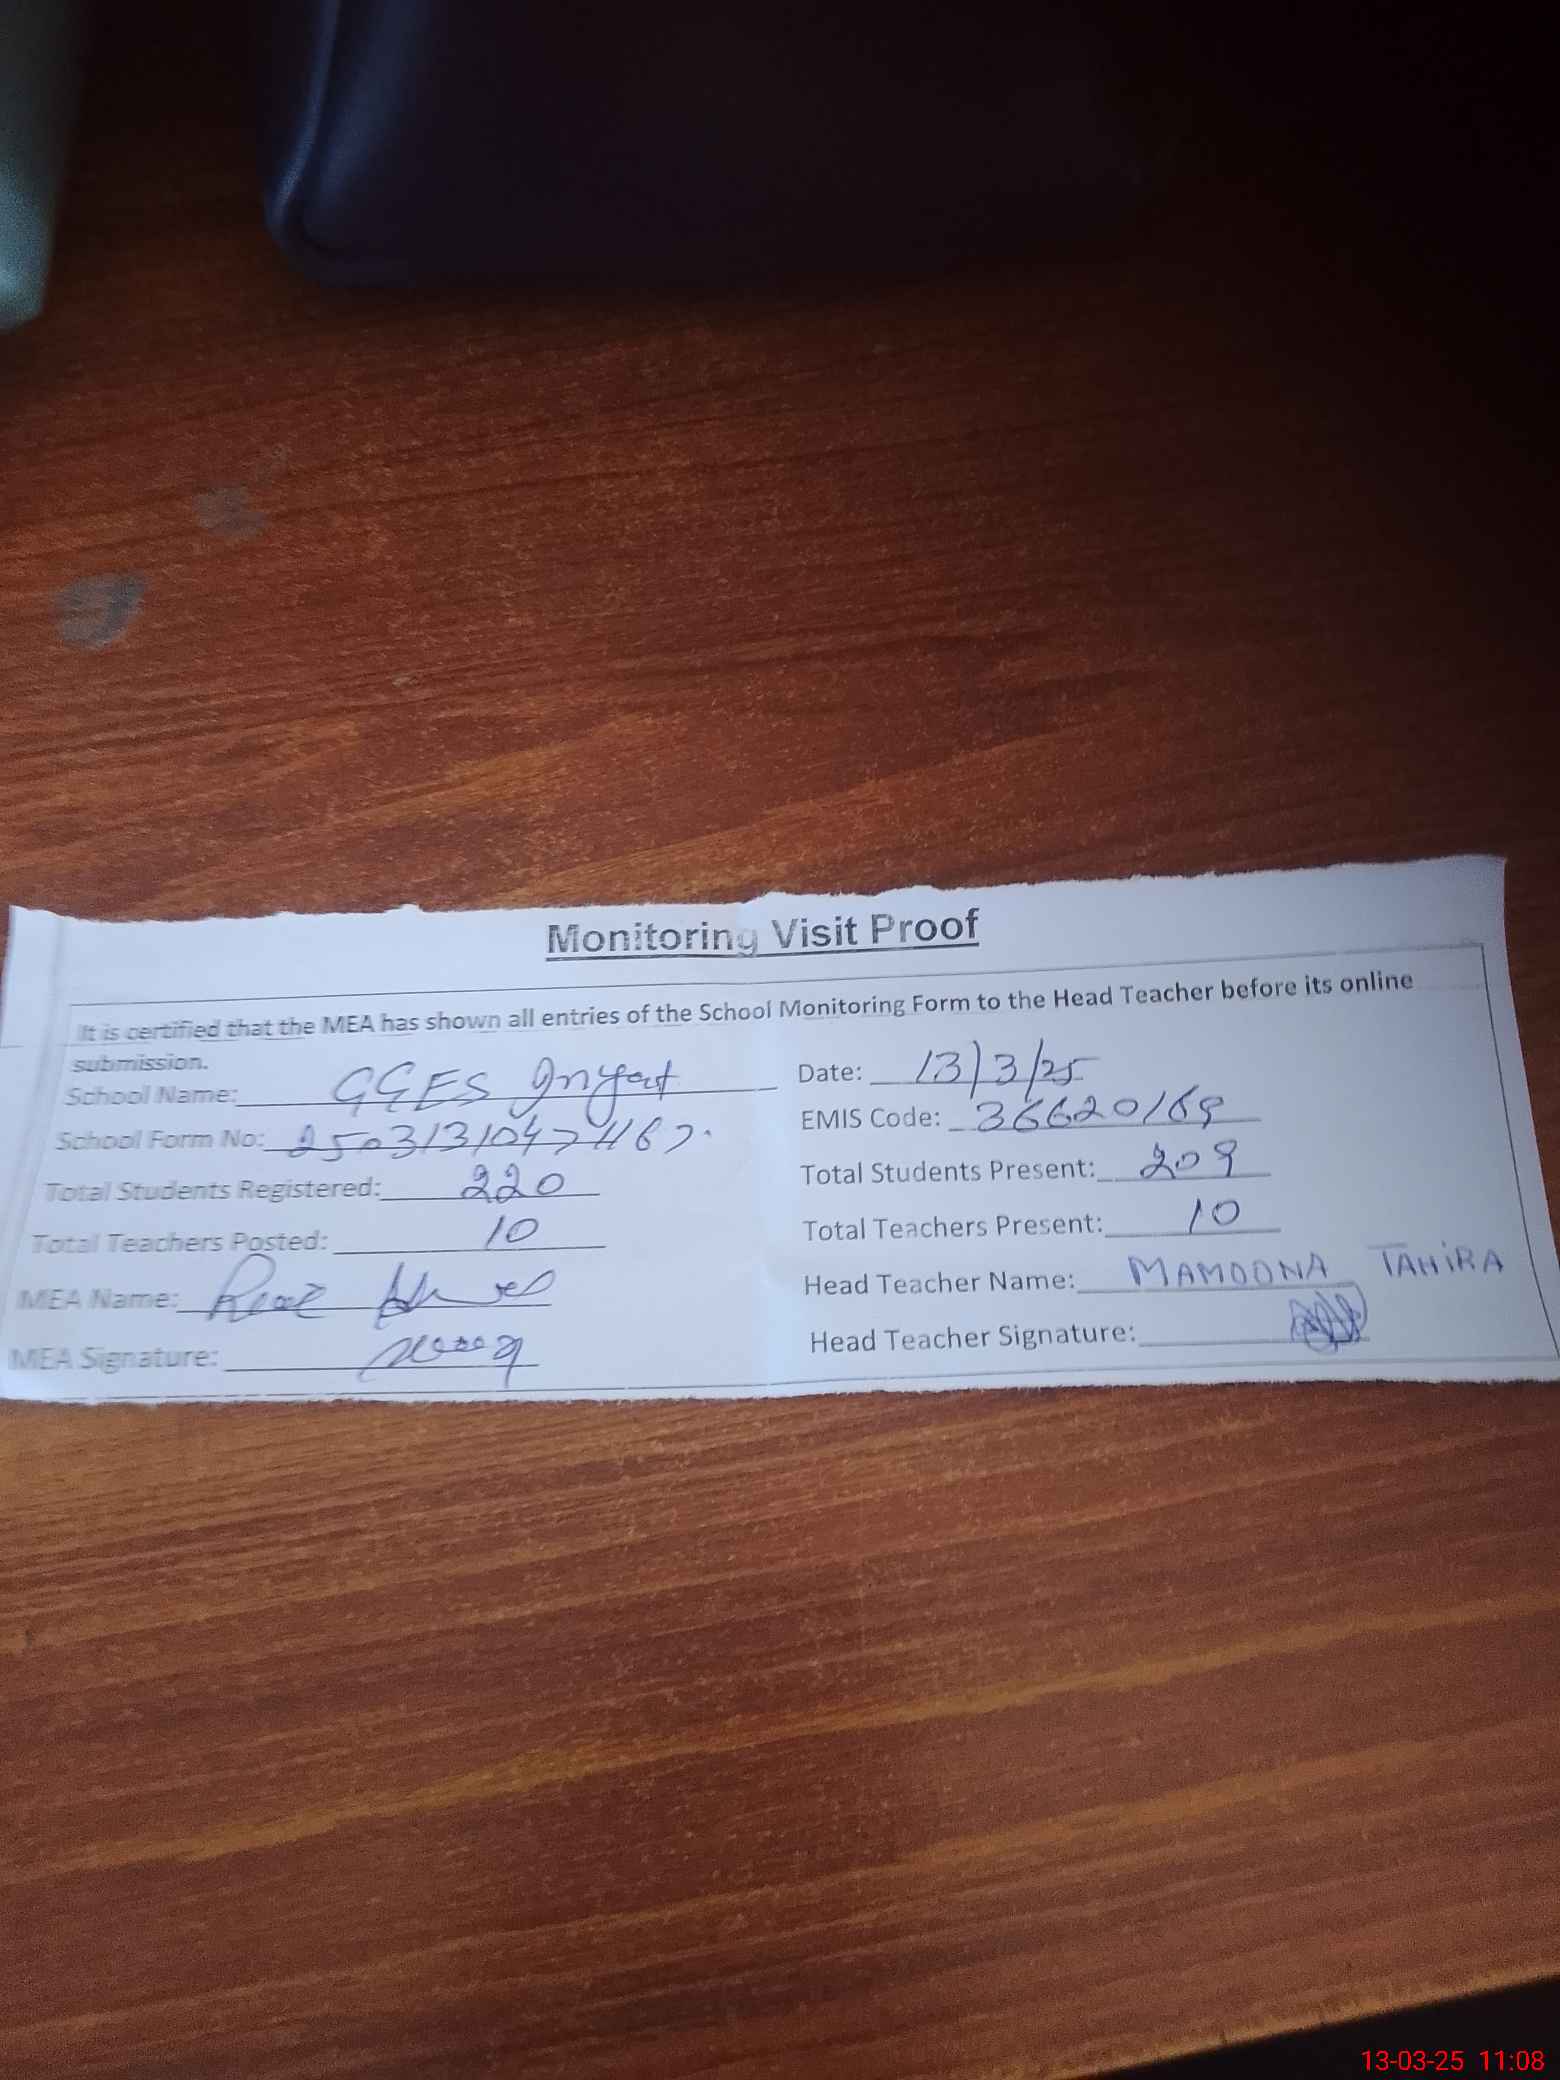 Monitoring Visit Proof
It is certified that the MEA has shown all entries of the School Monitoring Form to the Head Teacher before its online
submission.
School Name: GGES Inyat
Date: 13/3/25
School Form No:
EMIS Code: 36620169
Total Students Registered: 220
Total Students Present: 209
Total Teachers Posted: 10
Total Teachers Present: 10
MEA Name:
Head Teacher Name: MAMOONA TAHIRA
MEA Signature:
Head Teacher Signature:
13-03-25 11:08